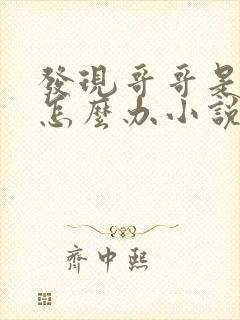 發現哥哥是
怎麼办小說
齊中熙